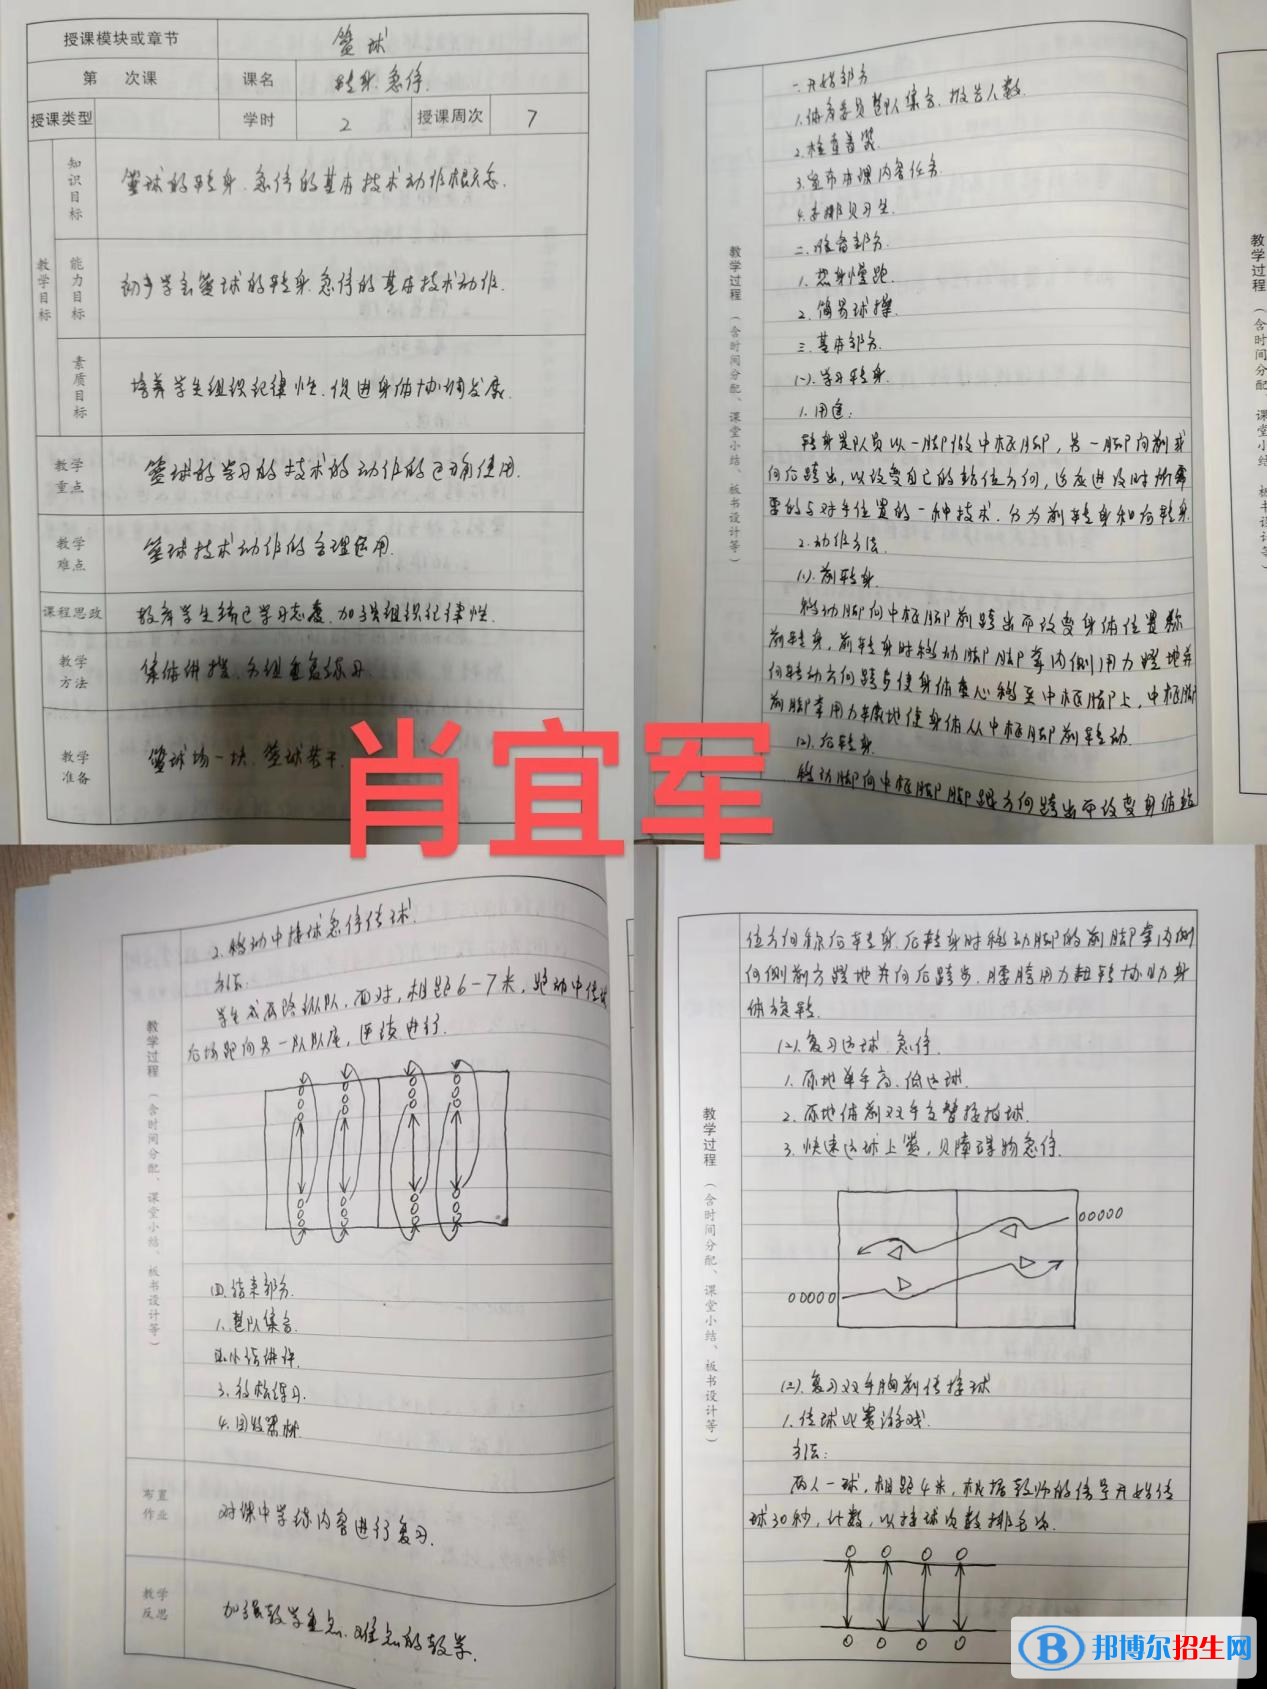 授课模块或章节 篮球
第 次课 课名 转身.急停.
授课类型 学时 2 授课周次 7
教学目标
知识目标 篮球的转身.急停的基本技术动作概念.
能力目标 初步学会篮球的转身.急停的基本技术动作.
素质目标 培养学生组织纪律性.促进身体协调发展.
教学重点 篮球的学习的技术的动作的正确使用.
教学难点 篮球技术动作的合理运用.
课程思政 教育学生端正学习态度.加强组织纪律性.
教学方法 集体讲授、分组重复练习.
教学准备 篮球场一块、篮球若干.
肖宜军
教学过程（含时间分配、课堂小结、板书设计等）
一.开始部分
1.体育委员整队集合.报告人数.
2.检查着装.
3.宣布本课内容任务.
4.安排见习生.
二.准备部分.
1.热身慢跑.
2.简易球操.
三.基本部分.
(一).学习转身.
1.用途:
转身是队员以一脚做中枢脚，另一脚向前或
向后跨出，以改变自己的站位方向，适应进攻时所需
要的与对手位置的一种技术.分为前转身和后转身.
2.动作方法.
(1).前转身.
移动脚向中枢脚前跨出而改变身体位置称
前转身，前转身时移动脚脚掌内侧用力蹬地并
向转动方向跨步使身体重心移至中枢脚上，中枢脚
前脚掌用力碾地使身体从中枢脚前转动.
(2).后转身.
移动脚向中枢脚脚跟方向跨出而改变身体站
教学过程（含时间分配、课堂小结、板书设计等）
位方向称后转身.后转身时移动脚的前脚掌内侧
向侧前方蹬地并向后跨步，腰胯用力扭转协助身
体旋转.
(二).复习运球.急停.
1.原地单手高、低运球.
2.原地体前双手交替接拍球.
3.快速运球上篮，见障碍物急停.
00000
00000
(三).复习双手胸前传接球
1.传球比赛游戏.
方法:
两人一球，相距4米，根据教师的信号开始传
球30秒，计数，以接球次数排名次.
教学过程（含时间分配、课堂小结、板书设计等）
2.移动中接球急停传球.
方法:
学生成两路纵队，面对，相距6-7米，跑动中传球
后场跑向另一队队尾，连续进行.
四.结束部分.
1.整队集合.
2.小结讲评.
3.放松练习.
4.回收器材.
布置作业 对课中学练内容进行复习.
教学反思 加强教学重点、难点的教学.
邦博尔招生网